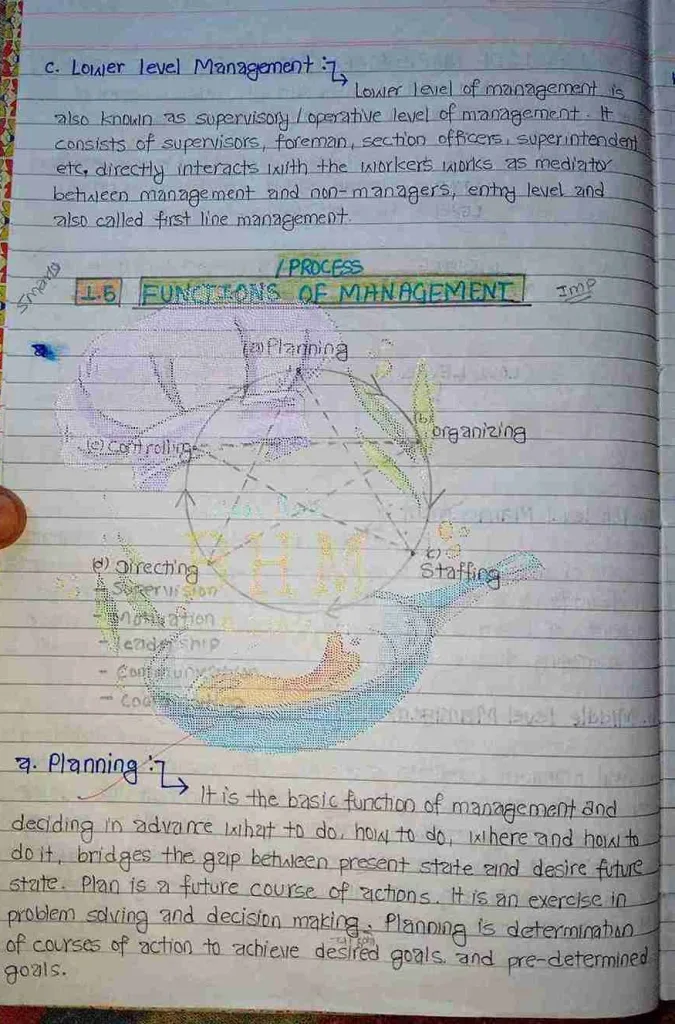 c. Lower level Management :-
Lower level of management is
also known as supervisory / operative level of management. It
consists of supervisors, foreman, section officers, superintendent
etc, directly interacts with the workers works as mediator
between management and non-managers, entry level and
also called first line management.
/PROCESS
1.5 FUNCTIONS OF MANAGEMENT Imp
5marks
(a) Planning
(b)
organizing
(e) controlling
c)
Staffing
d) Directing
- Supervision
- Motivation
- Leadership
- Communication
BHM
a. Planning :-
It is the basic function of management and
deciding in advance what to do, how to do, where and how to
do it, bridges the gap between present state and desire future
state. Plan is a future course of actions. It is an exercise in
problem solving and decision making. Planning is determination
of courses of action to achieve desired goals. and pre-determined
goals.